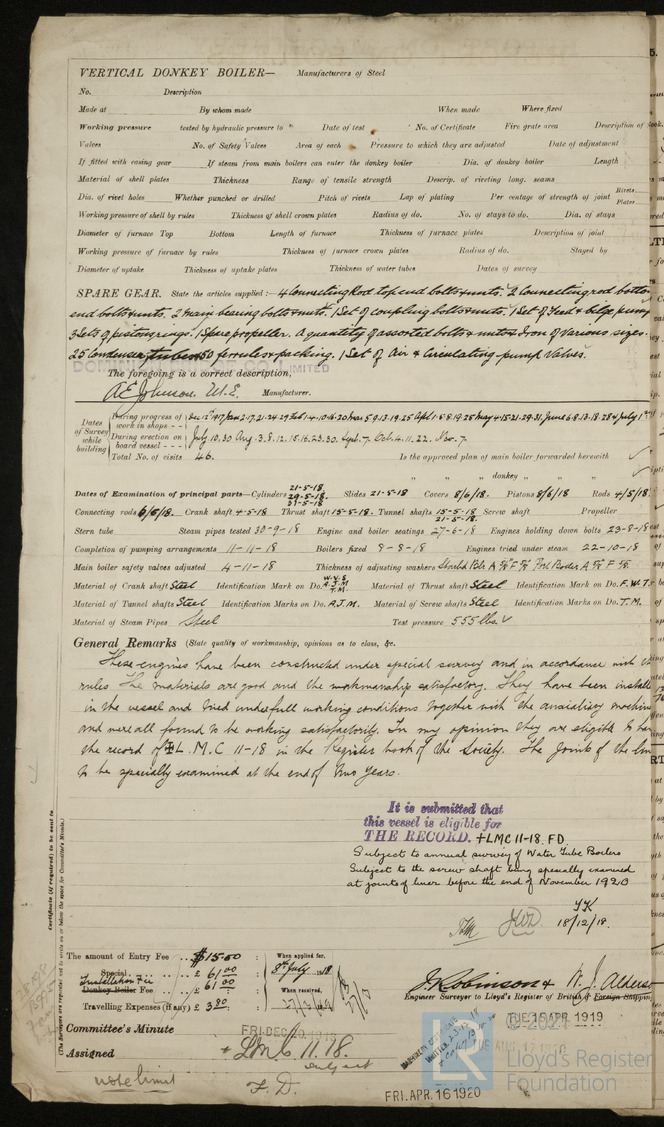 VERTICAL DONKEY BOILER— Manufacturers of Steel
No. Description
Made at By whom made When made Where fixed
Working pressure tested by hydraulic pressure to Date of test No. of Certificate Fire grate area Description of
Valves No. of Safety Valves Area of each Pressure to which they are adjusted Date of adjustment
If fitted with easing gear If steam from main boilers can enter the donkey boiler Dia. of donkey boiler Length
Material of shell plates Thickness Range of tensile strength Descrip. of riveting long. seams
Dia. of rivet holes Whether punched or drilled Pitch of rivets Lap of plating Per centage of strength of joint Rivets Plates
Working pressure of shell by rules Thickness of shell crown plates Radius of do. No. of stays to do. Dia. of stays
Diameter of furnace Top Bottom Length of furnace Thickness of furnace plates Description of joint
Working pressure of furnace by rules Thickness of furnace crown plates Radius of do. Stayed by
Diameter of uptake Thickness of uptake plates Thickness of water tubes Dates of survey
SPARE GEAR. State the articles supplied:— 4 Connecting Rod top end bolts & nuts. 2 Connecting rod bottom
end bolts & nuts. 2 main bearing bolts & nuts. 1 Set of coupling bolts & nuts. 1 Set of Feed & bilge pump
3 Sets of piston rings. 1 Spare propeller. A quantity of assorted bolts & nuts & Iron of various sizes.
25 Condenser tubes 50 ferrules & packing. 1 Set of Air & Circulating pump Valves.
The foregoing is a correct description,
A E Johnson, M.E. Manufacturer.
Dates of Survey while building
During progress of work in shops - -
During erection on board vessel - - - July 10.30 Aug. 3.8.12.15.16.23.30. Sept. 7. Oct. 4.11.22. Nov. 7.
Total No. of visits 46. Is the approved plan of main boiler forwarded herewith
" " " donkey " " "
Dates of Examination of principal parts—Cylinders 21-5-18 29-5-18 Slides 21-5-18 Covers 8/6/18. Pistons 8/6/18 Rods 4/5/18
Connecting rods 6/5/18. Crank shaft 4-5-18 Thrust shaft 15-5-18. Tunnel shafts 15-5-18 21-5-18. Screw shaft Propeller
Stern tube Steam pipes tested 30-9-18 Engine and boiler seatings 27-6-18 Engines holding down bolts 23-8-18
Completion of pumping arrangements 11-11-18 Boilers fixed 9-8-18 Engines tried under steam 22-10-18
Main boiler safety valves adjusted 4-11-18 Thickness of adjusting washers
Material of Crank shaft Steel Identification Mark on Do. A.J.M. T.M. Material of Thrust shaft Steel Identification Mark on Do. F.W.T.
Material of Tunnel shafts Steel Identification Marks on Do. A.J.M. Material of Screw shafts Steel Identification Marks on Do. T.M.
Material of Steam Pipes Steel Test pressure 555 lbs.
General Remarks (State quality of workmanship, opinions as to class, &c.
These engines have been constructed under special survey and in accordance with the
rules The materials are good and the workmanship satisfactory. They have been install
in the vessel and tried under full working conditions together with the auxiliary machin
and were all found to be working satisfactorily. In my opinion they are eligible to have
the record of L.M.C 11-18 in the Register book of the Society. The Joints of the
to be specially examined at the end of two years.
It is submitted that
this vessel is eligible for
THE RECORD. +LMC 11-18. FD
Subject to annual survey of Water Tube Boilers
Subject to the screw shaft being specially examined
at joints of liner before the end of November 1920
18/12/18.
Certificate (if required) to be sent to
(The Surveyors are requested not to write on or below the space for Committee's Minute.)
The amount of Entry Fee .. $15.00 When applied for,
Special .. £ 61.00 8th July 1918
Installation Fee
Donkey Boiler Fee .. £ 61.00 When received,
Travelling Expenses (if any) £ 3.80
J. Robinson & W. J. Alderso
Engineer Surveyor to Lloyd's Register of British & Foreign Shipping
Committee's Minute FRI. DEC. 20 1918
TUE. 15 APR. 1919
Assigned + LMC 11.18.
subject
F.D.
note limit
FRI. APR. 16 1920
© 2021
Lloyd's Register
Foundation